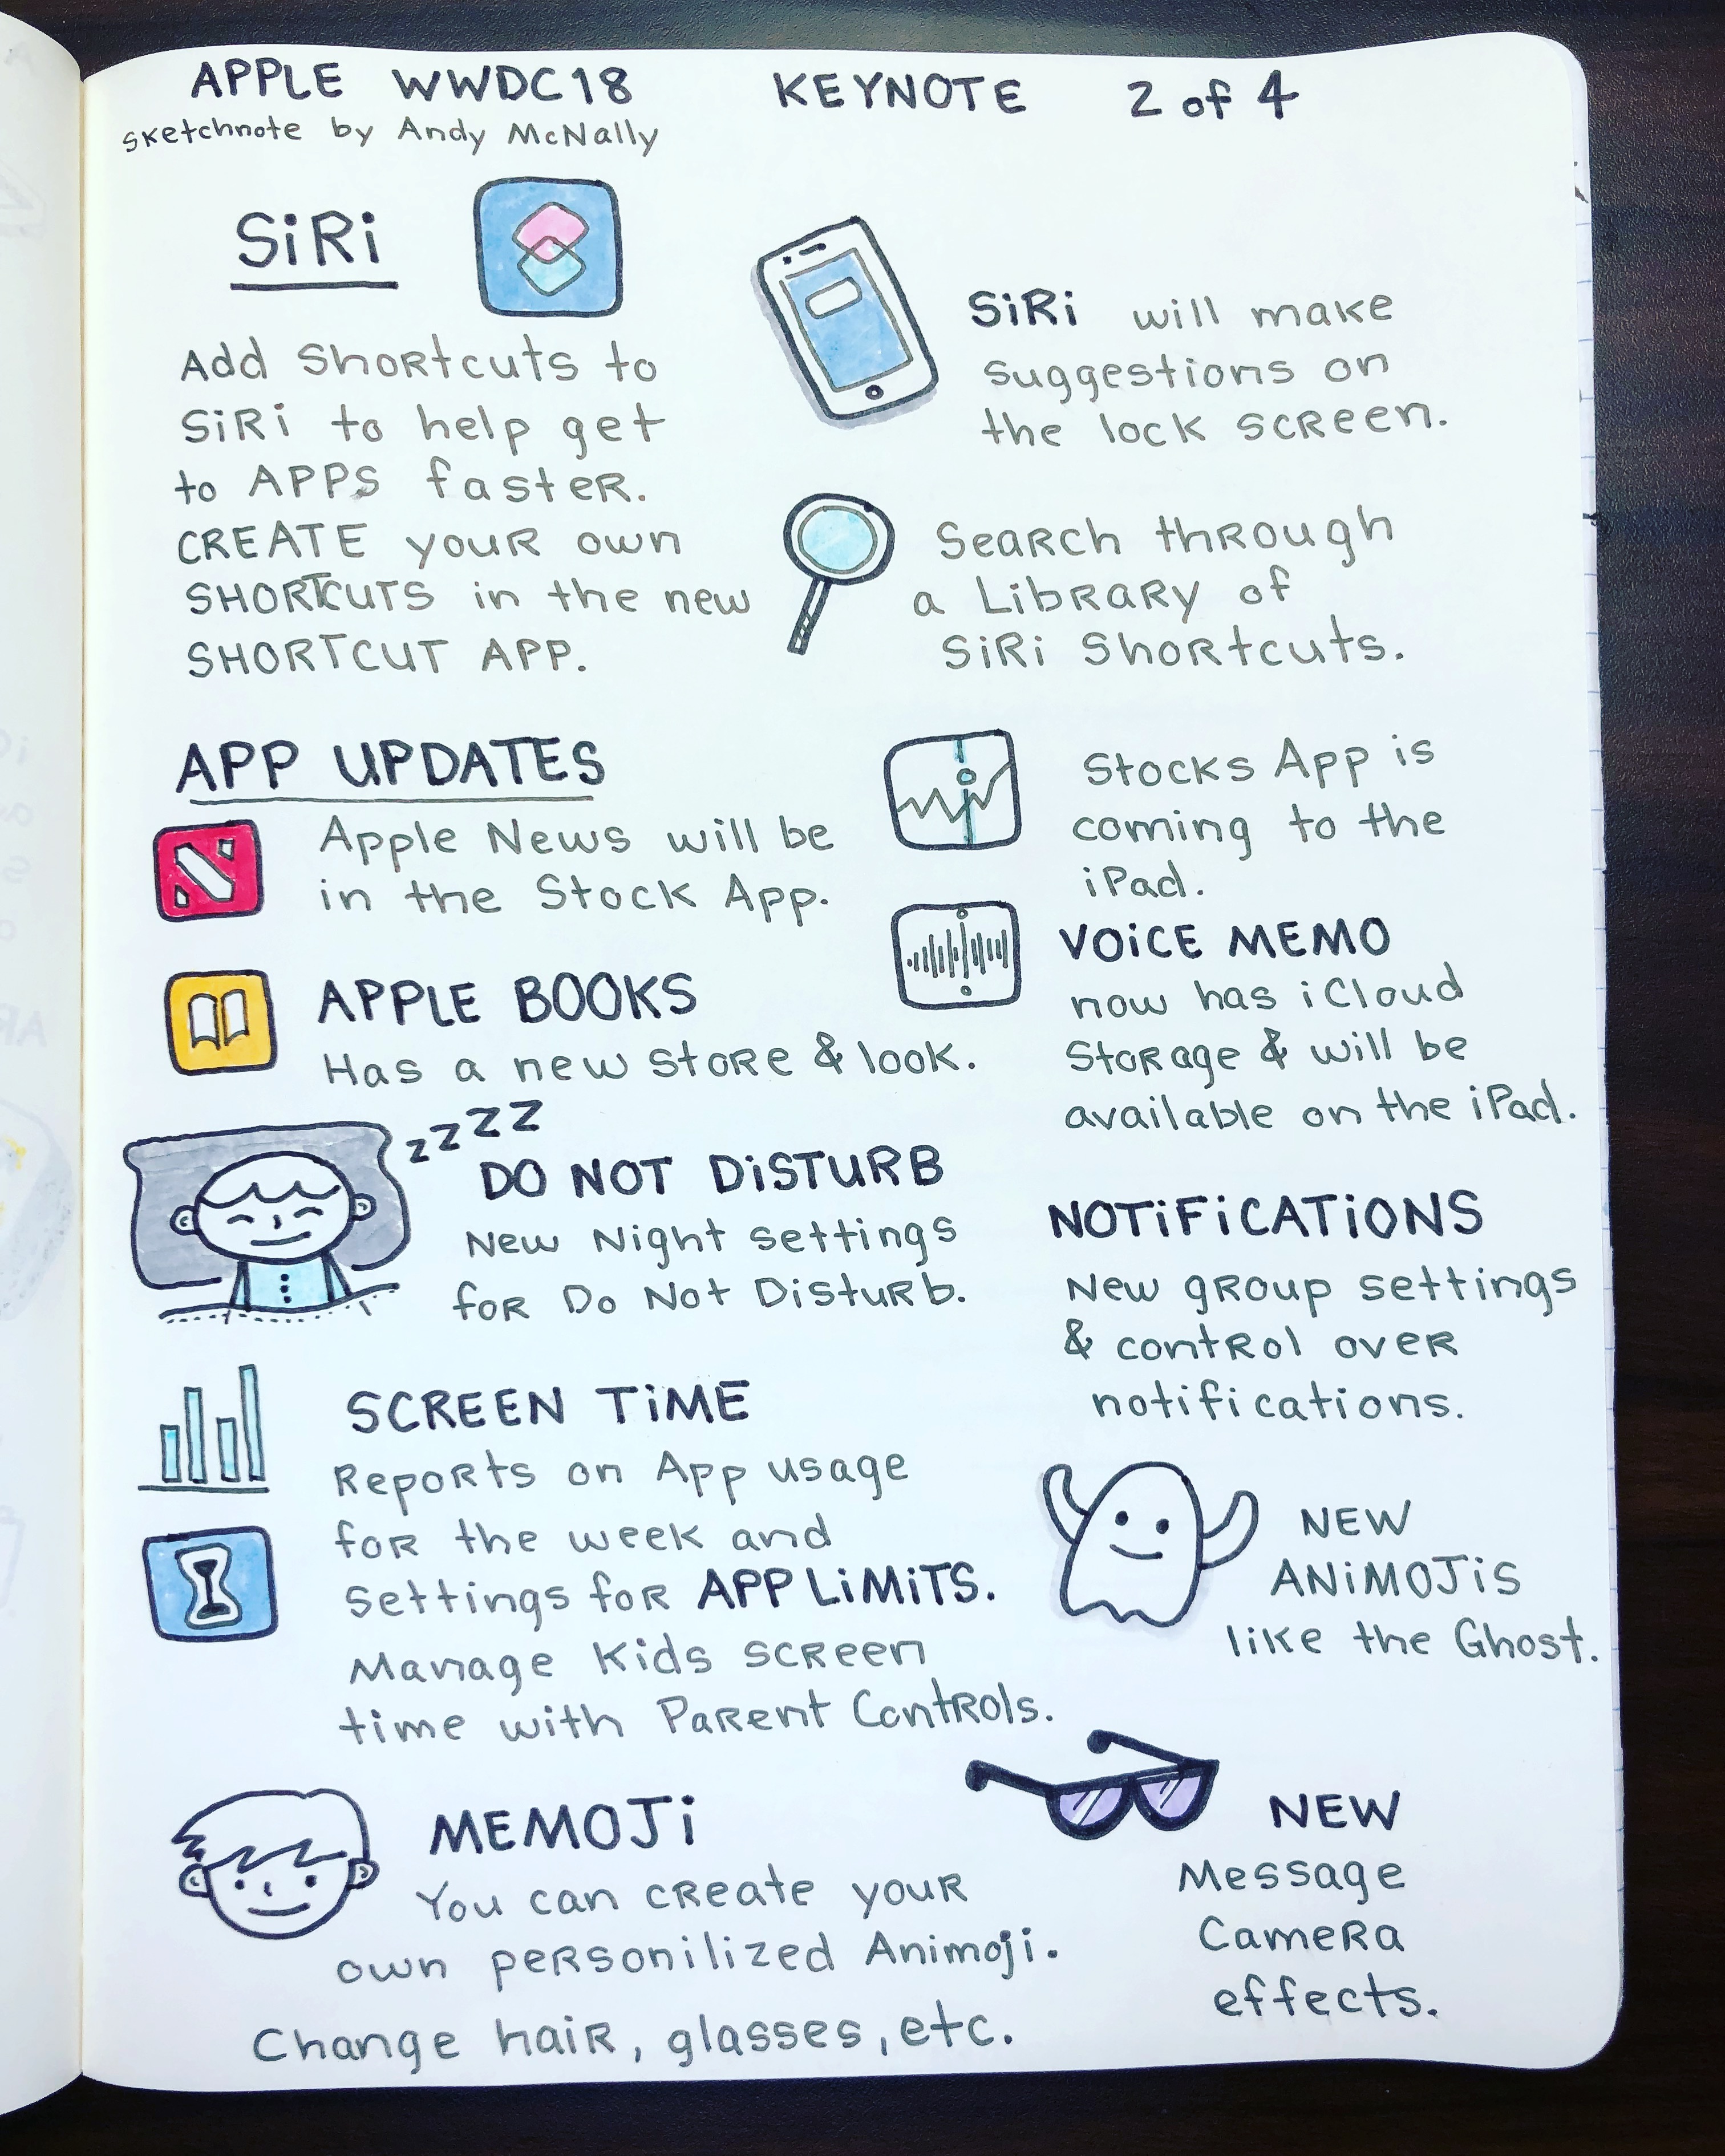 APPLE WWDC18 KEYNOTE 2 of 4
sketchnote by Andy McNally
SiRi
Add Shortcuts to
SiRi to help get
to APPS faster.
CREATE your own
SHORTCUTS in the new
SHORTCUT APP.
SiRi will make
suggestions on
the lock screen.
Search through
a Library of
SiRi Shortcuts.
APP UPDATES
Apple News will be
in the Stock App.
Stocks App is
coming to the
iPad.
APPLE BOOKS
Has a new store & look.
VOiCE MEMO
now has iCloud
Storage & will be
available on the iPad.
zzzz
DO NOT DiSTURB
New Night settings
for Do Not Disturb.
NOTiFiCATiONS
New group settings
& control over
notifications.
SCREEN TiME
Reports on App usage
for the week and
settings for APP LiMiTS.
Manage Kids screen
time with Parent Controls.
NEW
ANiMOJiS
like the Ghost.
MEMOJi
You can create your
own personilized Animoji.
Change hair, glasses, etc.
NEW
Message
Camera
effects.